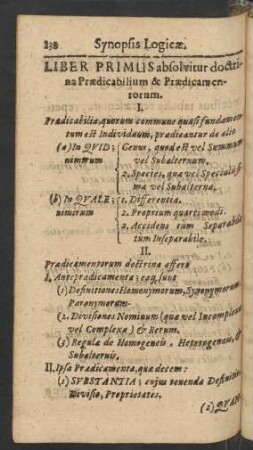 238 Synopsis Logicæ.
LIBER PRIMUS absolvitur doctri-
na Prædicabilium & Prædicamen-
torum.
I.
Prædicabilia, quorum commune quasi fundamen-
tum est Individuum, prædicantur de alio
(a) In QUID; 1. Genus, quod est vel Summum
nimirum vel Subalternum.
2. Species, qua vel Specialissi-
ma vel Subalterna,
(b) In QVALE; 1. Differentia.
nimirum 2. Proprium quarti modi.
3. Accidens tum Separabile
tum Inseparabile.
II.
Prædicamentorum doctrina offert
I. Anteprædicamenta; eaq, sunt
(1) Definitiones: Homonymorum, Synonymorum
Paronymorum.
(2. Divisiones Nominum (qua vel Incomplexa
vel Complexa) & Rerum.
(3) Regula de Homogeneis, Heterogeneis, &
Subalternis.
II. Ipsa Prædicamenta, qua decem:
(1) SVBSTANTIA; cujus tenenda Definitio
Divisio, Proprietates.
(2) QUAN-